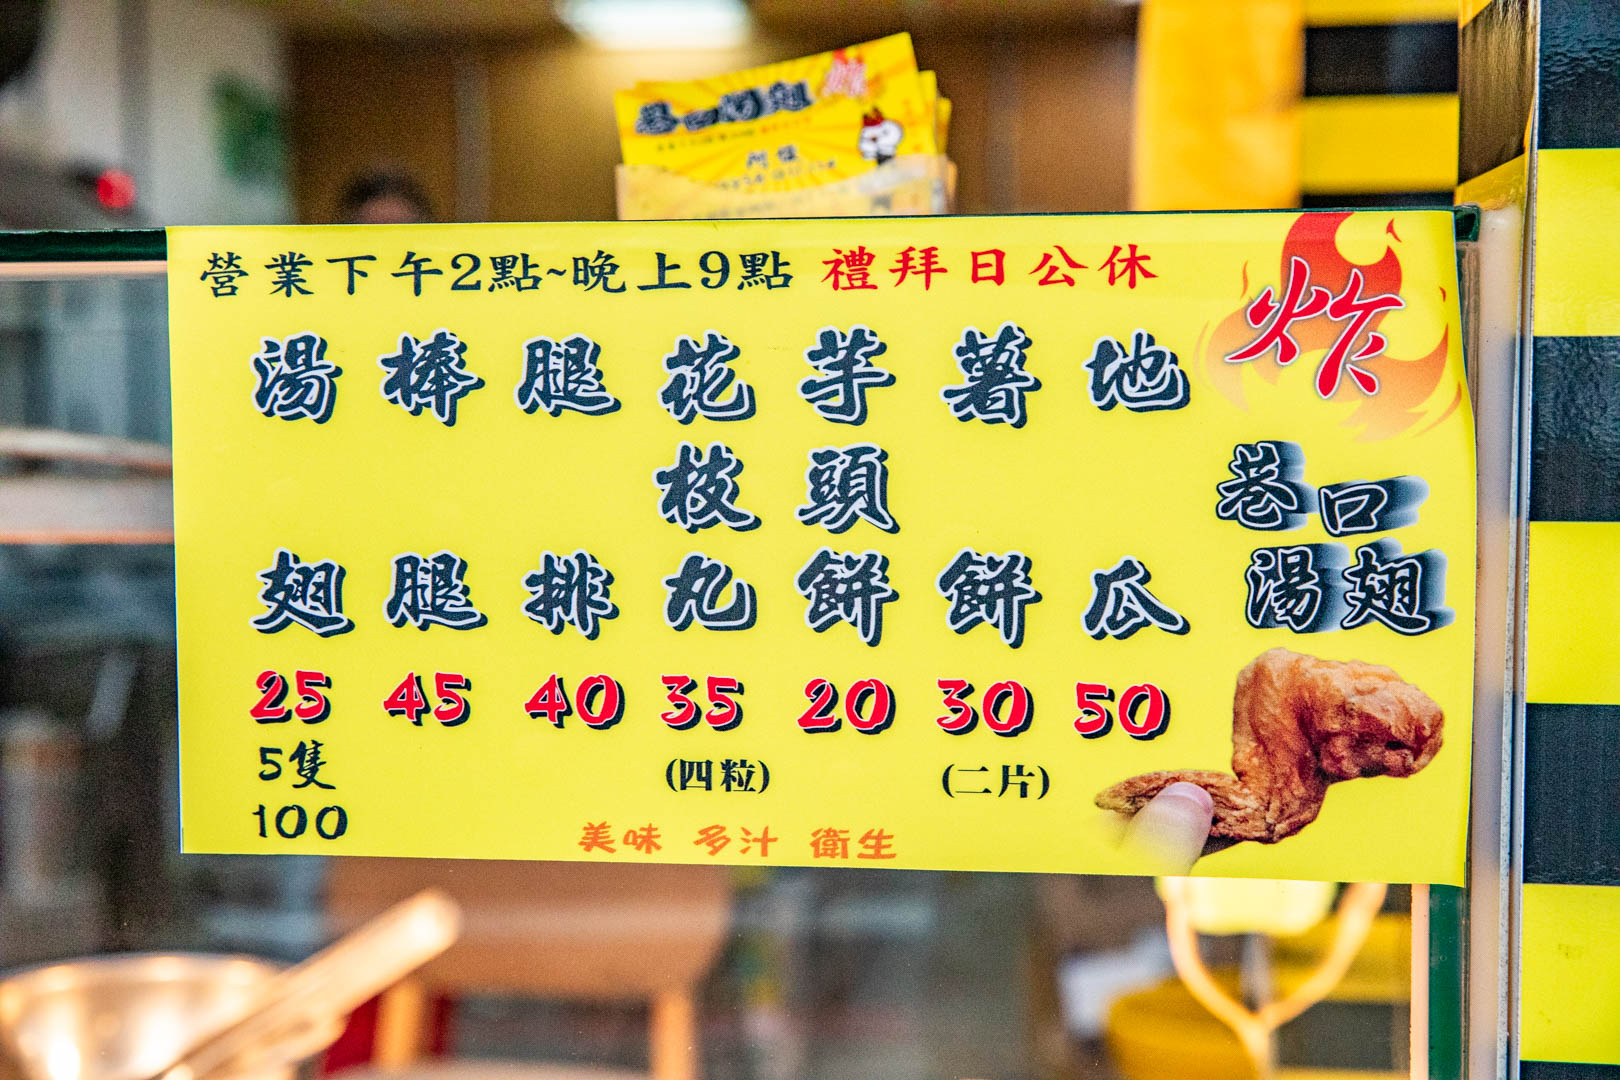 巷口湯翅 炸
營業下午2點~晚上9點 禮拜日公休
炸
巷口
湯翅
湯翅 25
5隻
100
棒腿 45
腿排 40
花枝丸 35
(四粒)
芋頭餅 20
薯餅 30
(二片)
地瓜 50
美味 多汁 衛生